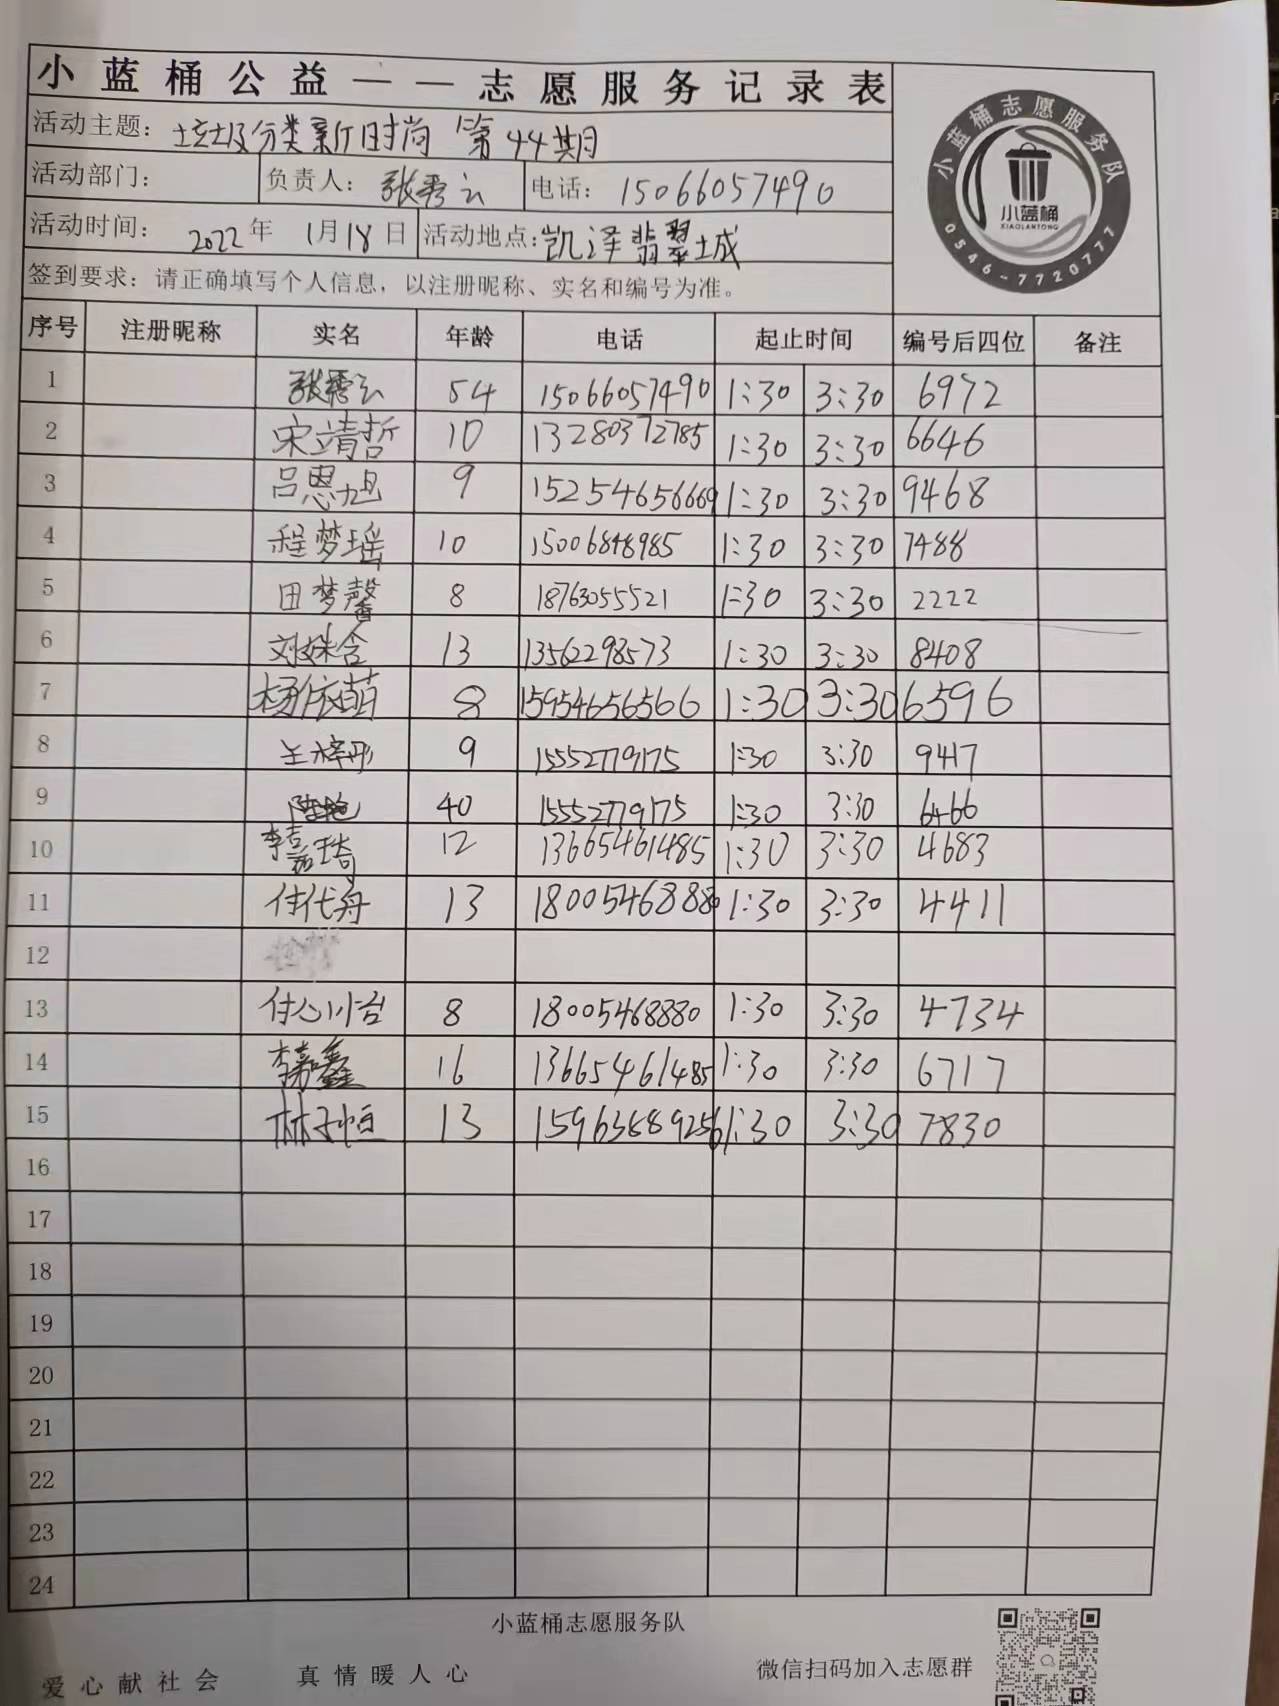 小蓝桶公益——志愿服务记录表
活动主题：垃圾分类新时尚 第44期
活动部门： 负责人：张秀云 电话：15066057490
活动时间：2022年 1月18日 活动地点：凯泽翡翠城
签到要求：请正确填写个人信息，以注册昵称、实名和编号为准。
小蓝桶志愿服务队
小蓝桶
XIAOLANTONG
0546-7720777
序号 注册昵称 实名 年龄 电话 起止时间 编号后四位 备注
1 张秀云 54 15066057490 1:30 3:30 6972
2 宋靖哲 10 13280372785 1:30 3:30 6646
3 吕思旭 9 15254656669 1:30 3:30 9468
4 程梦瑶 10 15006848985 1:30 3:30 7488
5 田梦馨 8 18763055521 1:30 3:30 2222
6 刘姝含 13 13562298573 1:30 3:30 8408
7 杨依萌 8 15954656566 1:30 3:30 6596
8 王梓彤 9 15552779175 1:30 3:30 9417
9 陈艳 40 15552779175 1:30 3:30 6466
10 李嘉琦 12 13665461485 1:30 3:30 4683
11 付代舟 13 18005468880 1:30 3:30 4411
12
13 付心怡 8 18005468880 1:30 3:30 4734
14 李嘉鑫 16 13665461485 1:30 3:30 6717
15 林子恒 13 15963689256 1:30 3:30 7830
16
17
18
19
20
21
22
23
24
小蓝桶志愿服务队
爱心献社会 真情暖人心 微信扫码加入志愿群